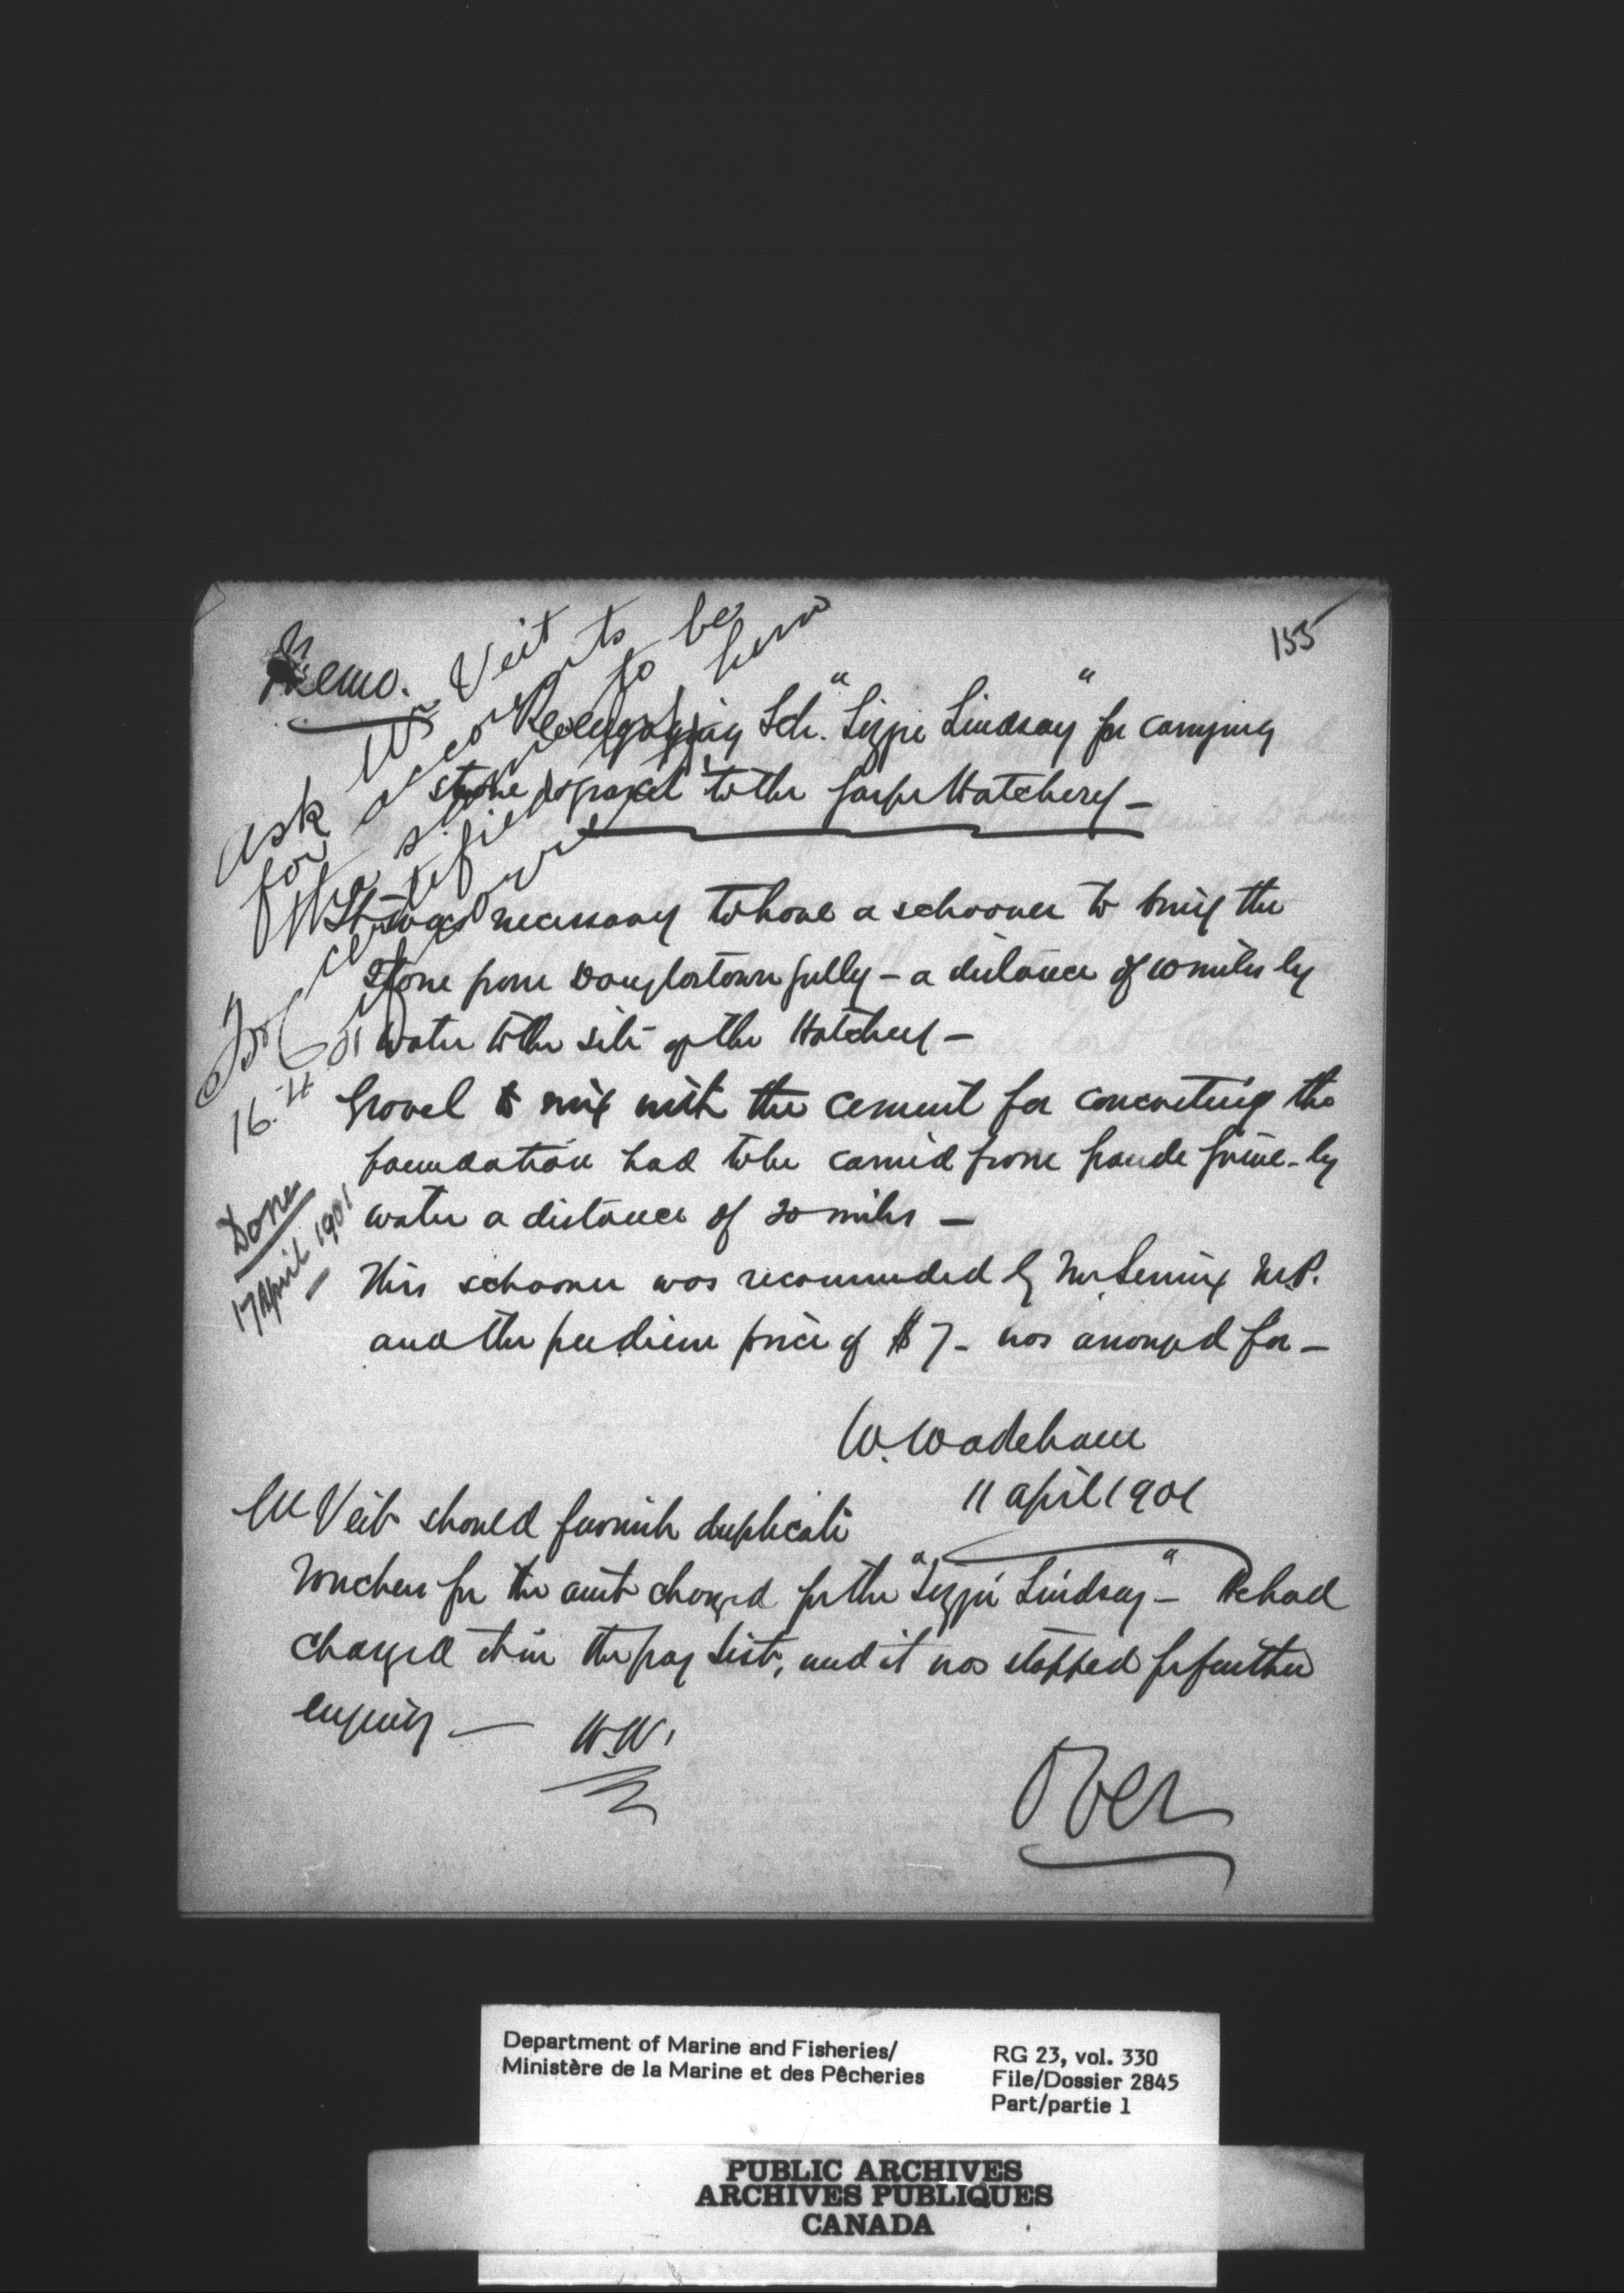 155
Memo.
Re engaging Sch. "Lizzie Lindsay" for carrying
stone & gravel to the Gaspe Hatchery —
It was necessary to have a schooner to bring the
stone from Douglastown gully – a distance of 10 miles by
water to the site of the Hatchery —
Gravel to mix with the cement for concreting the
foundation had to be carried from Grande Grève - by
water a distance of 20 miles —
This schooner was recommended by Mr Lemieux M.P.
and the per diem price of $7 - was arranged for —
W. Wakeham
11 April 1901
Mr Veit should furnish duplicate
vouchers for the amt charged for the "Lizzie Lindsay" – He had
charged it in the pay list, and it was stopped for further
enquiry — W.W.
Over
Ask Mr Veit
for accounts to be
certified
16.4.01
Done
17 April 1901
Department of Marine and Fisheries/
Ministère de la Marine et des Pêcheries
RG 23, vol. 330
File/Dossier 2845
Part/partie 1
PUBLIC ARCHIVES
ARCHIVES PUBLIQUES
CANADA